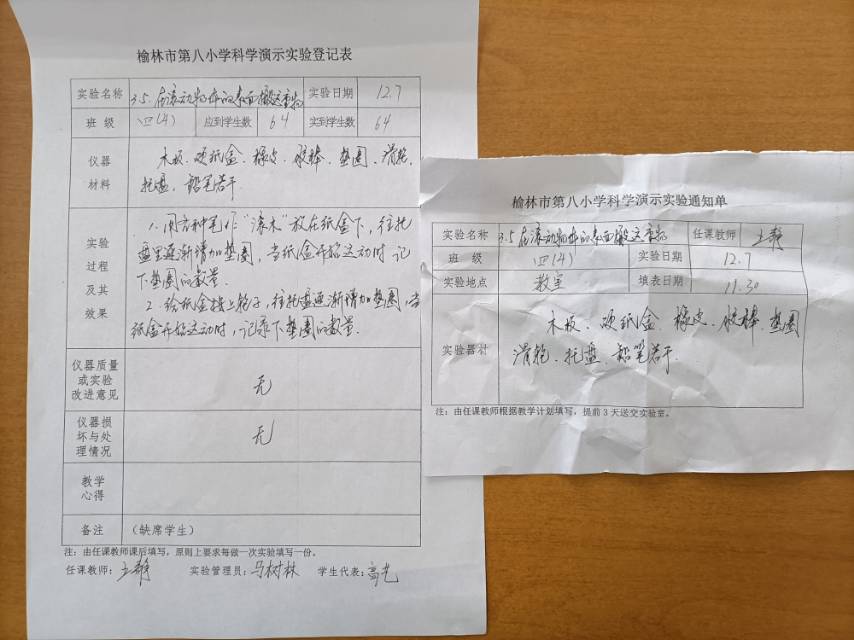 榆林市第八小学科学演示实验登记表
实验名称 3.5.在滚动物体的表面搬运重物 实验日期 12.7
班 级 四(4) 应到学生数 64 实到学生数 64
仪器 材料 木板、硬纸盒、橡皮、胶棒、垫圈、滑轮、
托盘、铅笔若干.
实验 过程 及其 效果
1. 用各种笔作"滚木"放在纸盒下,往托
盘里逐渐增加垫圈,当纸盒开始运动时 记
下垫圈的数量.
2. 给纸盒接上轮子,往托盘逐渐增加垫圈 当
纸盒开始运动时,记录下垫圈的数量.
仪器质量
或实验
改进意见
无
仪器损
坏与处
理情况
无
教学
心得
备注 (缺席学生)
注:由任课教师课后填写,原则上要求每做一次实验填写一份。
任课教师: 王静 实验管理员: 马树林 学生代表: 高
榆林市第八小学科学演示实验通知单
实验名称 3.5 在滚动物体的表面搬运重物 任课教师 王静
班 级 四(4) 实验日期 12.7
实验地点 教室 填表日期 11.30
实验器材
木板、硬纸盒、橡皮、胶棒、垫圈
滑轮、托盘、铅笔若干.
注:由任课教师根据教学计划填写,提前 3 天送交实验室。